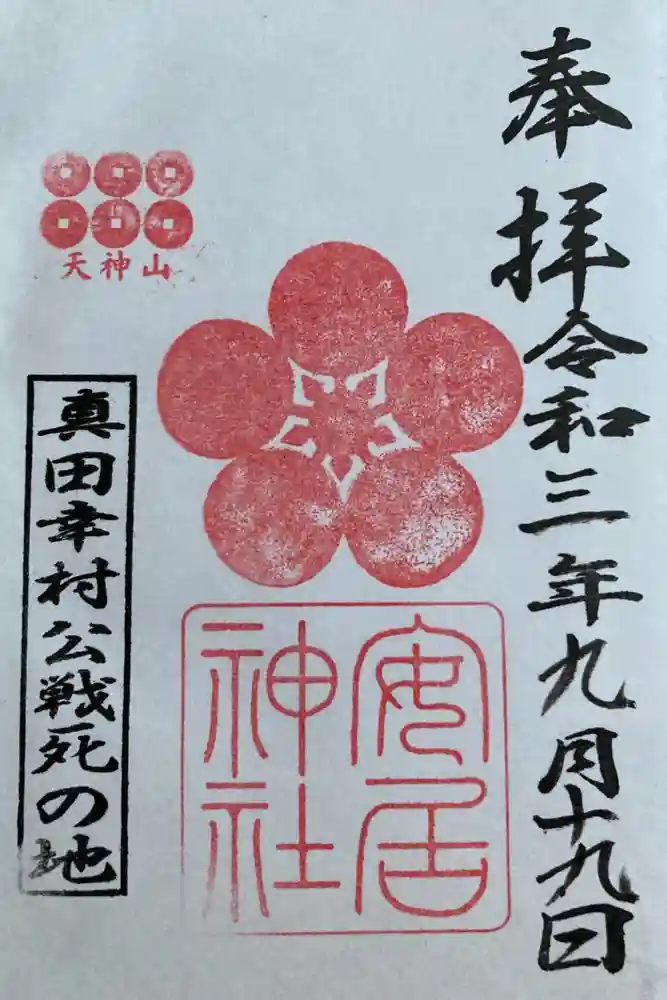 奉拝令和三年九月十九日
安居
神社
天神山
真田幸村公戦死の地